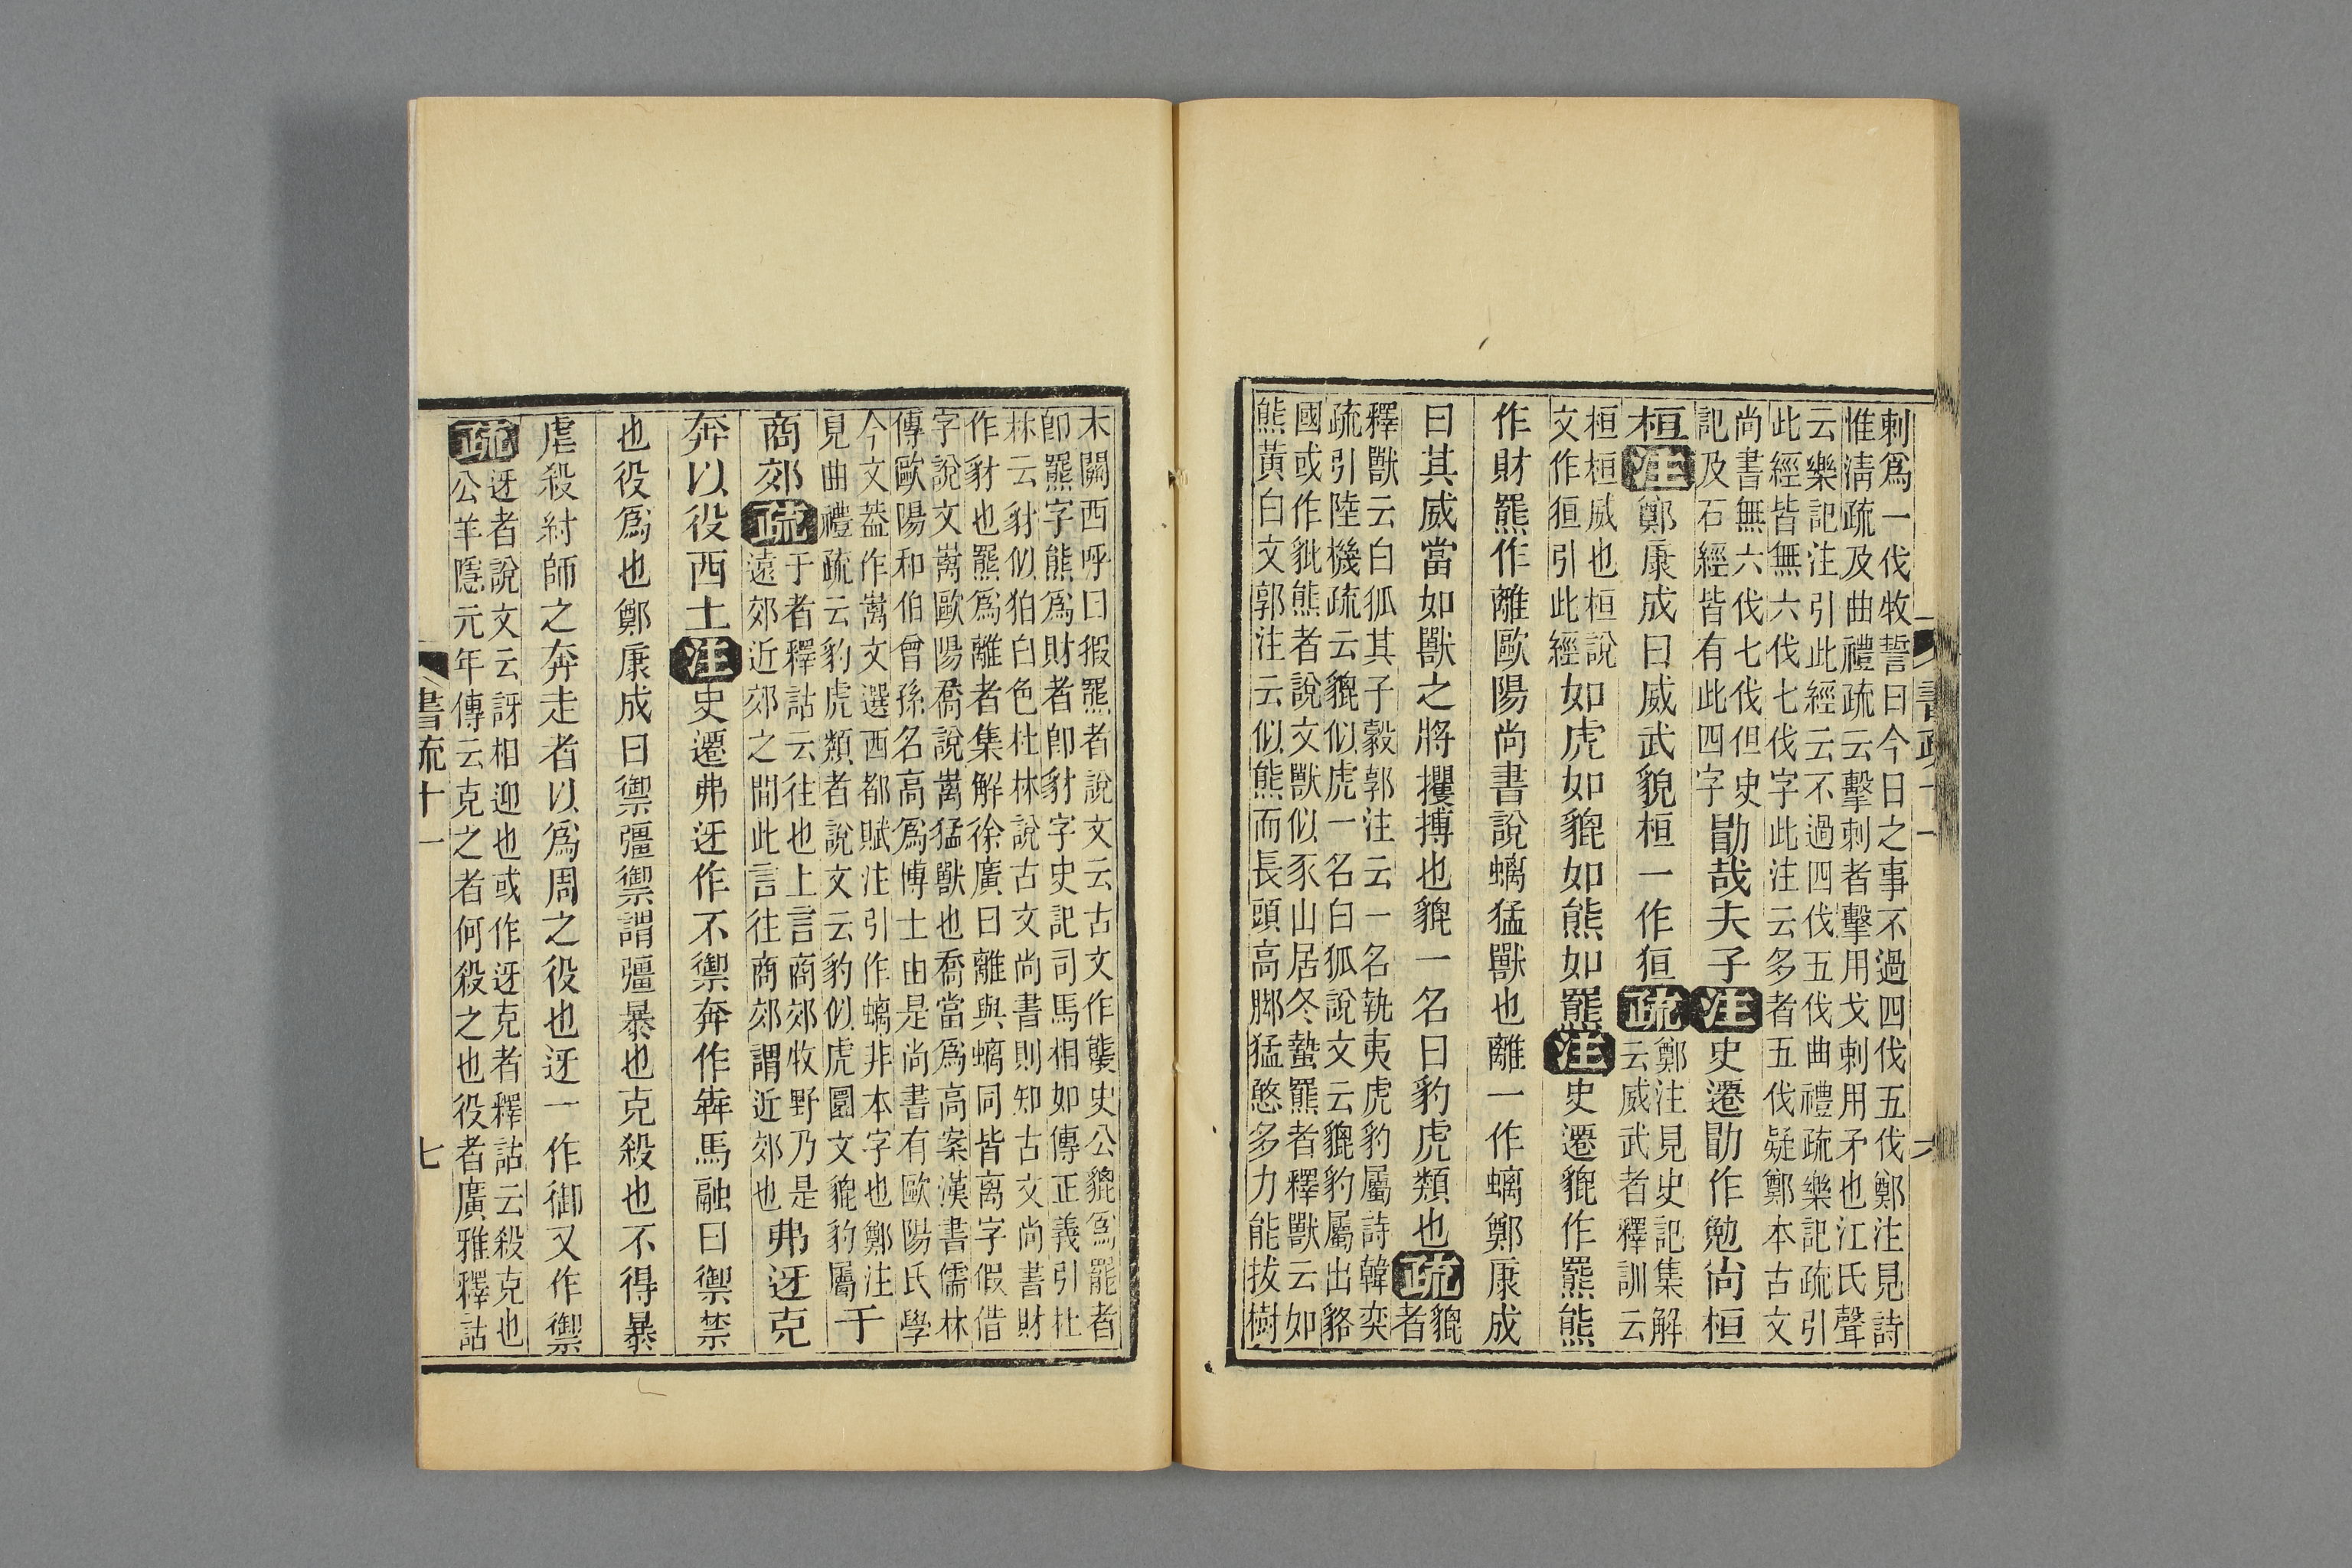 刺爲一伐牧誓曰今日之事不過四伐五伐鄭注見詩
惟淸疏及曲禮疏云擊刺者擊用戈刺用矛也江氏聲
云樂記注引此經云不過四伐五伐曲禮疏樂記疏引
此經皆無六伐七伐字此注云多者五伐疑鄭本古文
尚書無六伐七伐但史
記及石經皆有此四字
勖哉夫子注史遷勖作勉尚桓
桓注鄭康成曰威武貌桓一作狟疏
鄭注見史記集解
云威武者釋訓云
桓桓威也桓說
文作狟引此經
如虎如貔如熊如羆注史遷貔作羆熊
作財羆作離歐陽尚書說螭猛獸也離一作螭鄭康成
曰其威當如獸之將攫搏也貔一名曰豹虎類也疏
貔
者
釋獸云白狐其子豰郭注云一名執夷虎豹屬詩韓奕
疏引陸機疏云貔似虎一名白狐說文云貔豹屬出貉
國或作豼熊者說文獸似豕山居冬蟄羆者釋獸云如
熊黃白文郭注云似熊而長頭高腳猛憨多力能拔樹
書疏十一
六
木關西呼曰猳羆者說文云古文作𤠙史公貔爲罷者
卽羆字熊爲財者卽豺字史記司馬相如傳正義引杜
林云豺似狛白色杜林說古文尚書則知古文尚書財
作豺也羆爲離者集解徐廣曰離與螭同皆离字假借
字說文离歐陽喬說离猛獸也喬當爲高案漢書儒林
傳歐陽和伯曾孫名高爲博士由是尚書有歐陽氏學
今文葢作离文選西都賦注引作螭非本字也鄭注
見曲禮疏云豹虎類者說文云豹似虎圜文貔豹屬
于
商郊疏
于者釋詁云往也上言商郊牧野乃是
遠郊近郊之間此言往商郊謂近郊也
弗迓克
奔以役西土注史遷弗迓作不禦奔作犇馬融曰禦禁
也役爲也鄭康成曰禦彊禦謂彊暴也克殺也不得暴
虐殺紂師之奔走者以爲周之役也迓一作御又作禦
疏
迓者說文云訝相迎也或作迓克者釋詁云殺克也
公羊隱元年傳云克之者何殺之也役者廣雅釋詁
書疏十一
七